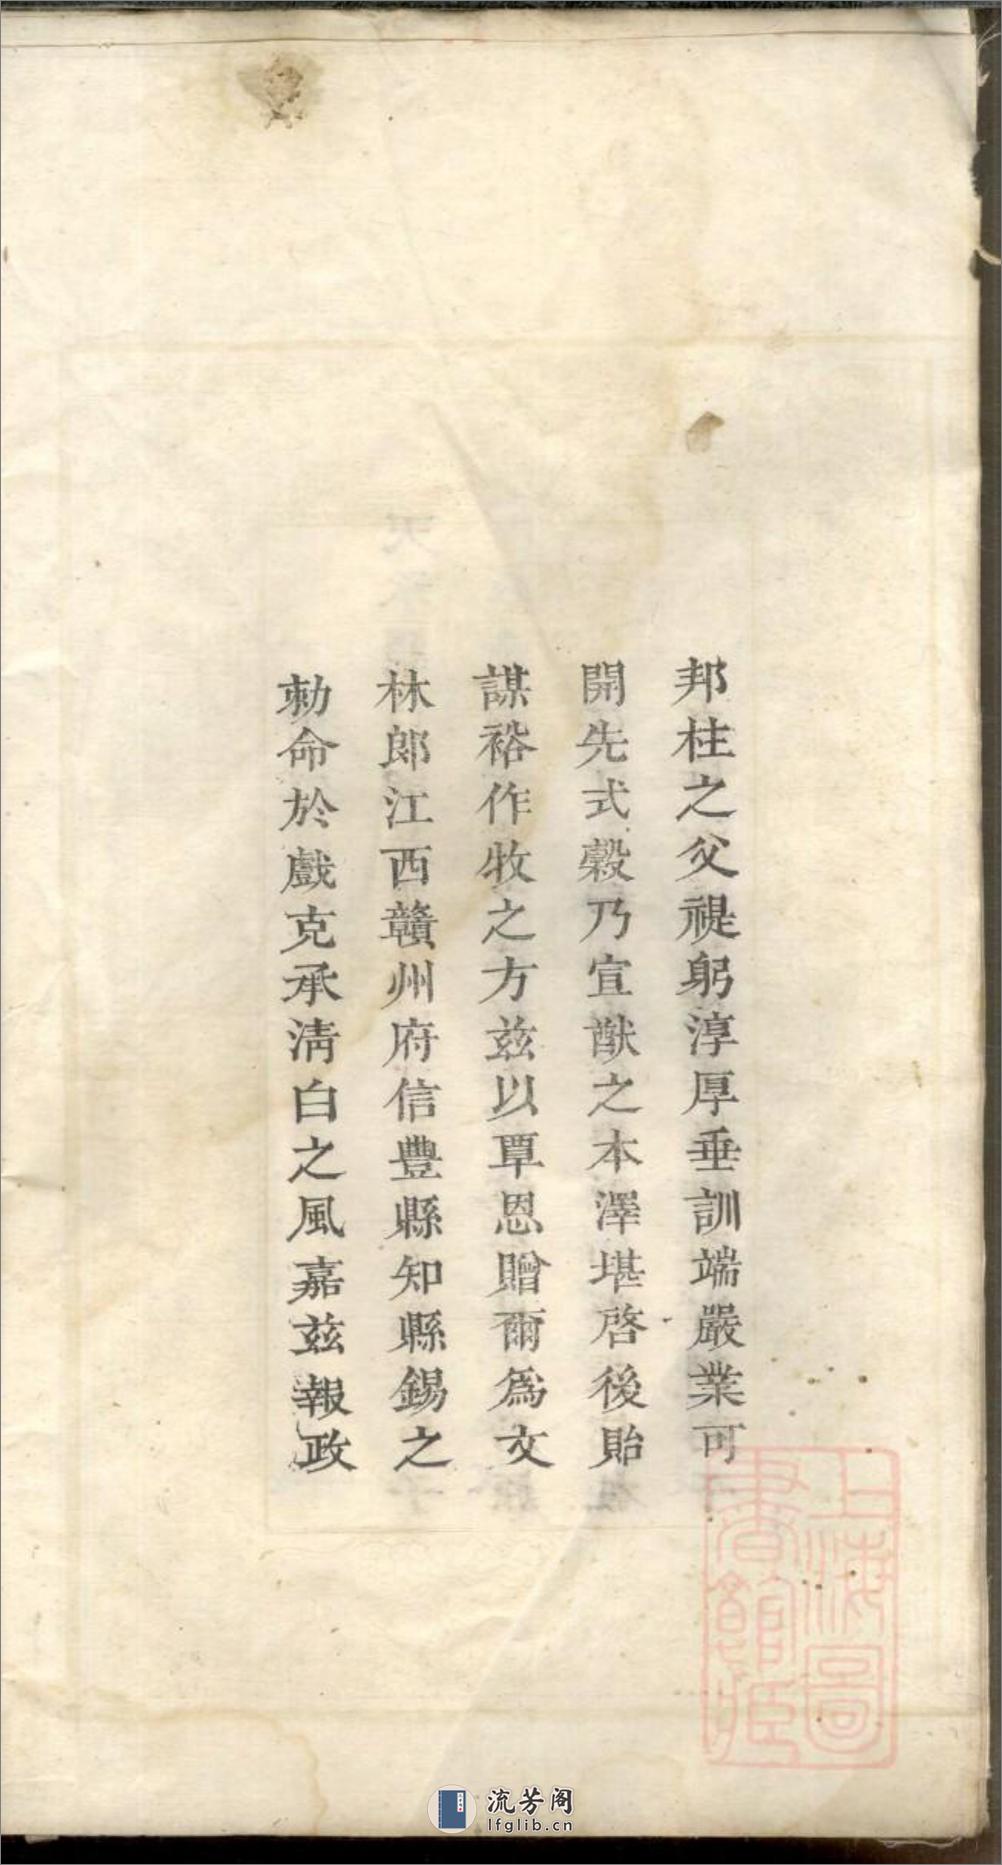 邦柱之父禔躬淳厚垂訓端嚴業可
開先式穀乃宣猷之本澤堪啓後貽
謀裕作牧之方兹以覃恩贈爾爲文
林郎江西贛州府信豐縣知縣錫之
勅命於戲克承淸白之風嘉兹報政
上海圖
書館
流芳阁
lfglib.cn